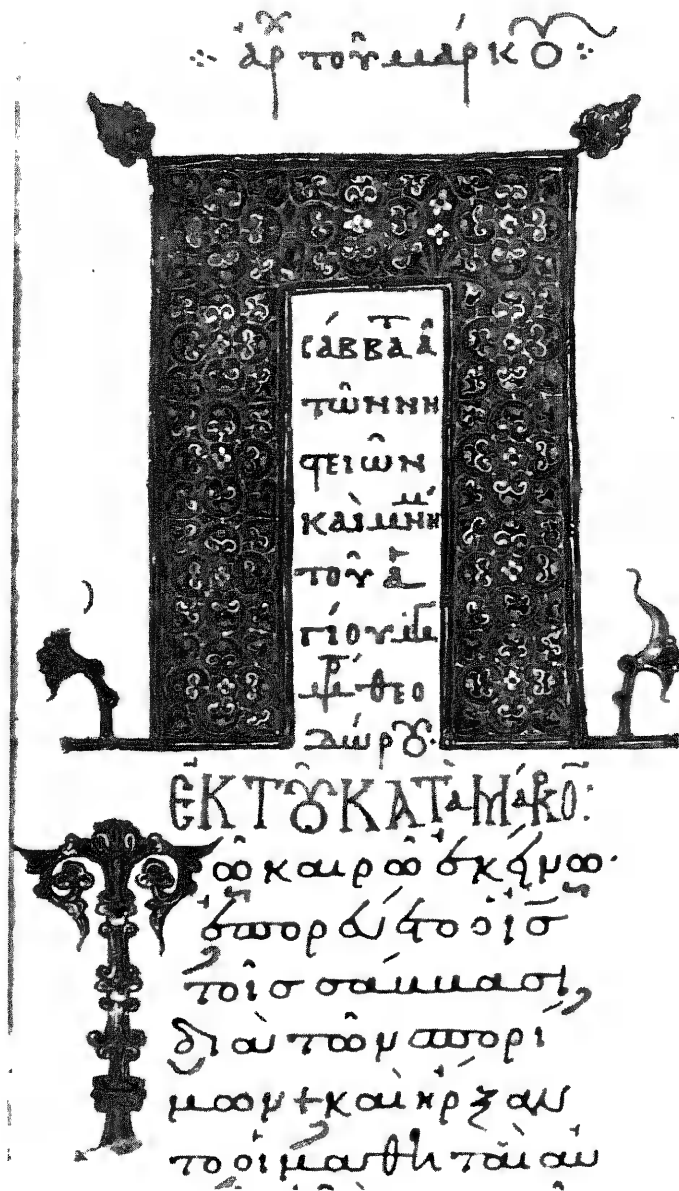 ἀρχ τοῦ μάρκου
σάββατω ᾱ
τῶν νη
στειῶν
καὶ μνήμη
τοῦ ἁ
γίου
θεο
δώρου
ἐκ τοῦ κατὰ Μάρκον:
Τῶ καιρῶ ἐκείνω·
ἐπορεύετο ὁ ἰς
τοῖς σάββασι,
διὰ τῶν σπορί
μων + καὶ ἤρξαν
το οἱ μαθηταὶ αὐ